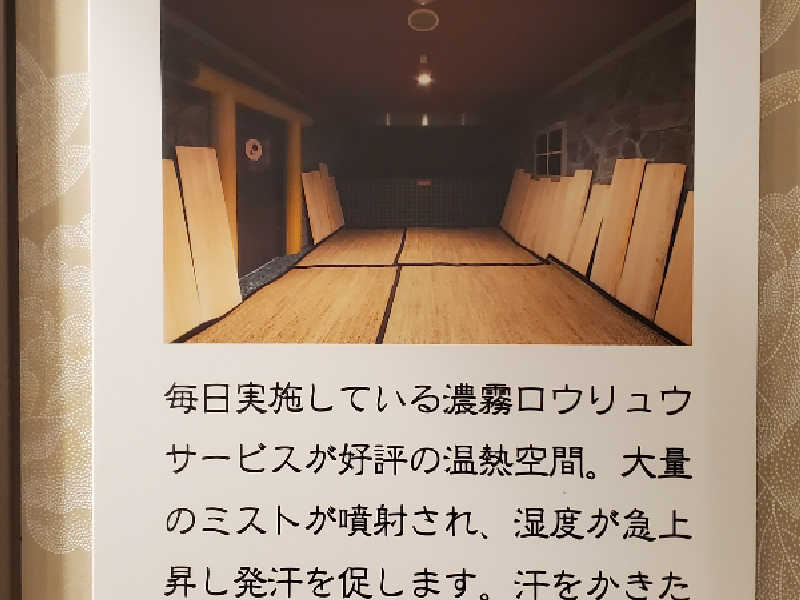 毎日実施している濃霧ロウリュウ
サービスが好評の温熱空間。大量
のミストが噴射され、湿度が急上
昇し発汗を促します。汗をかきた